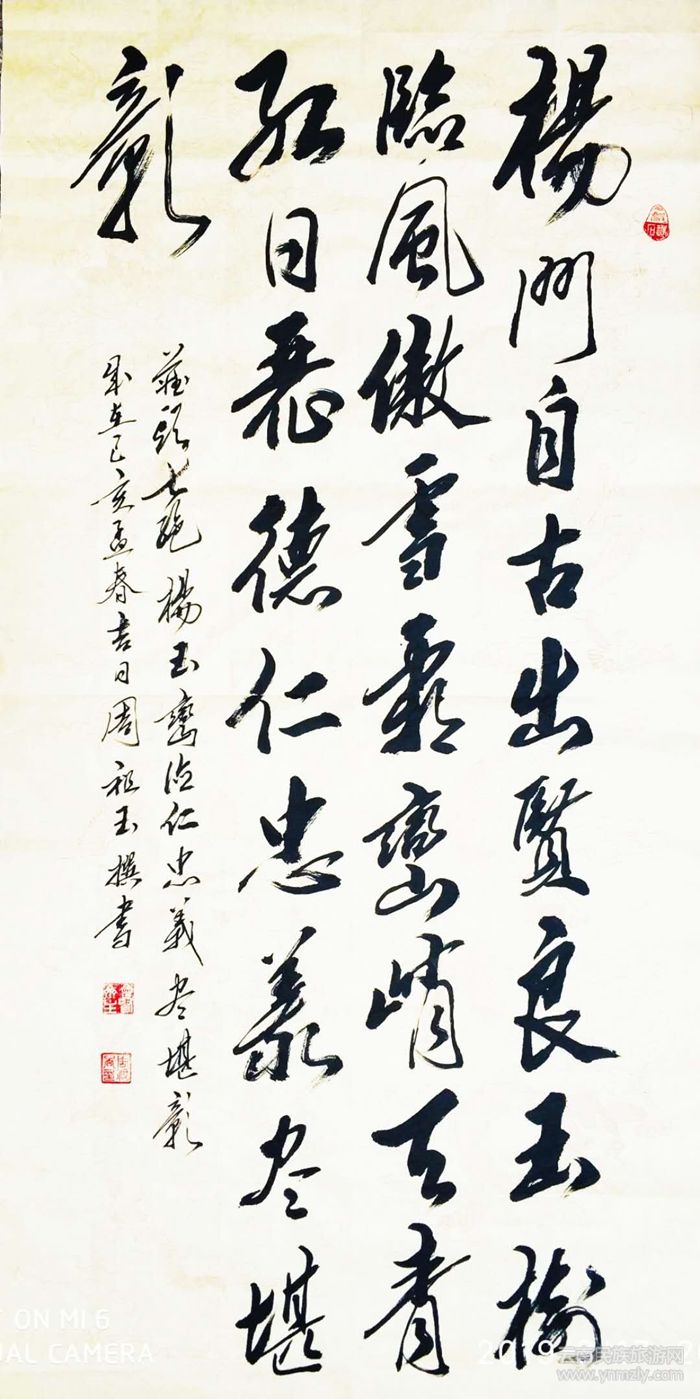 楊門自古出賢良玉樹
臨風傲雪霜巒峭天青
紅日德仁忠義尽堪
彰
藏頭七絕 楊玉巒德仁忠義尽堪彰
歲在己亥孟春吉日周祖玉撰書
ON MI 6
CAMERA
云南民族旅游网
www.ynmzly.com